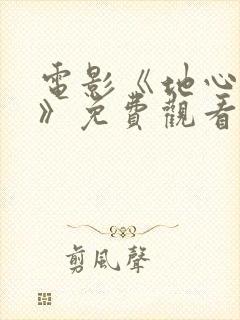 電影《地心
》免費觀看
剪風聲